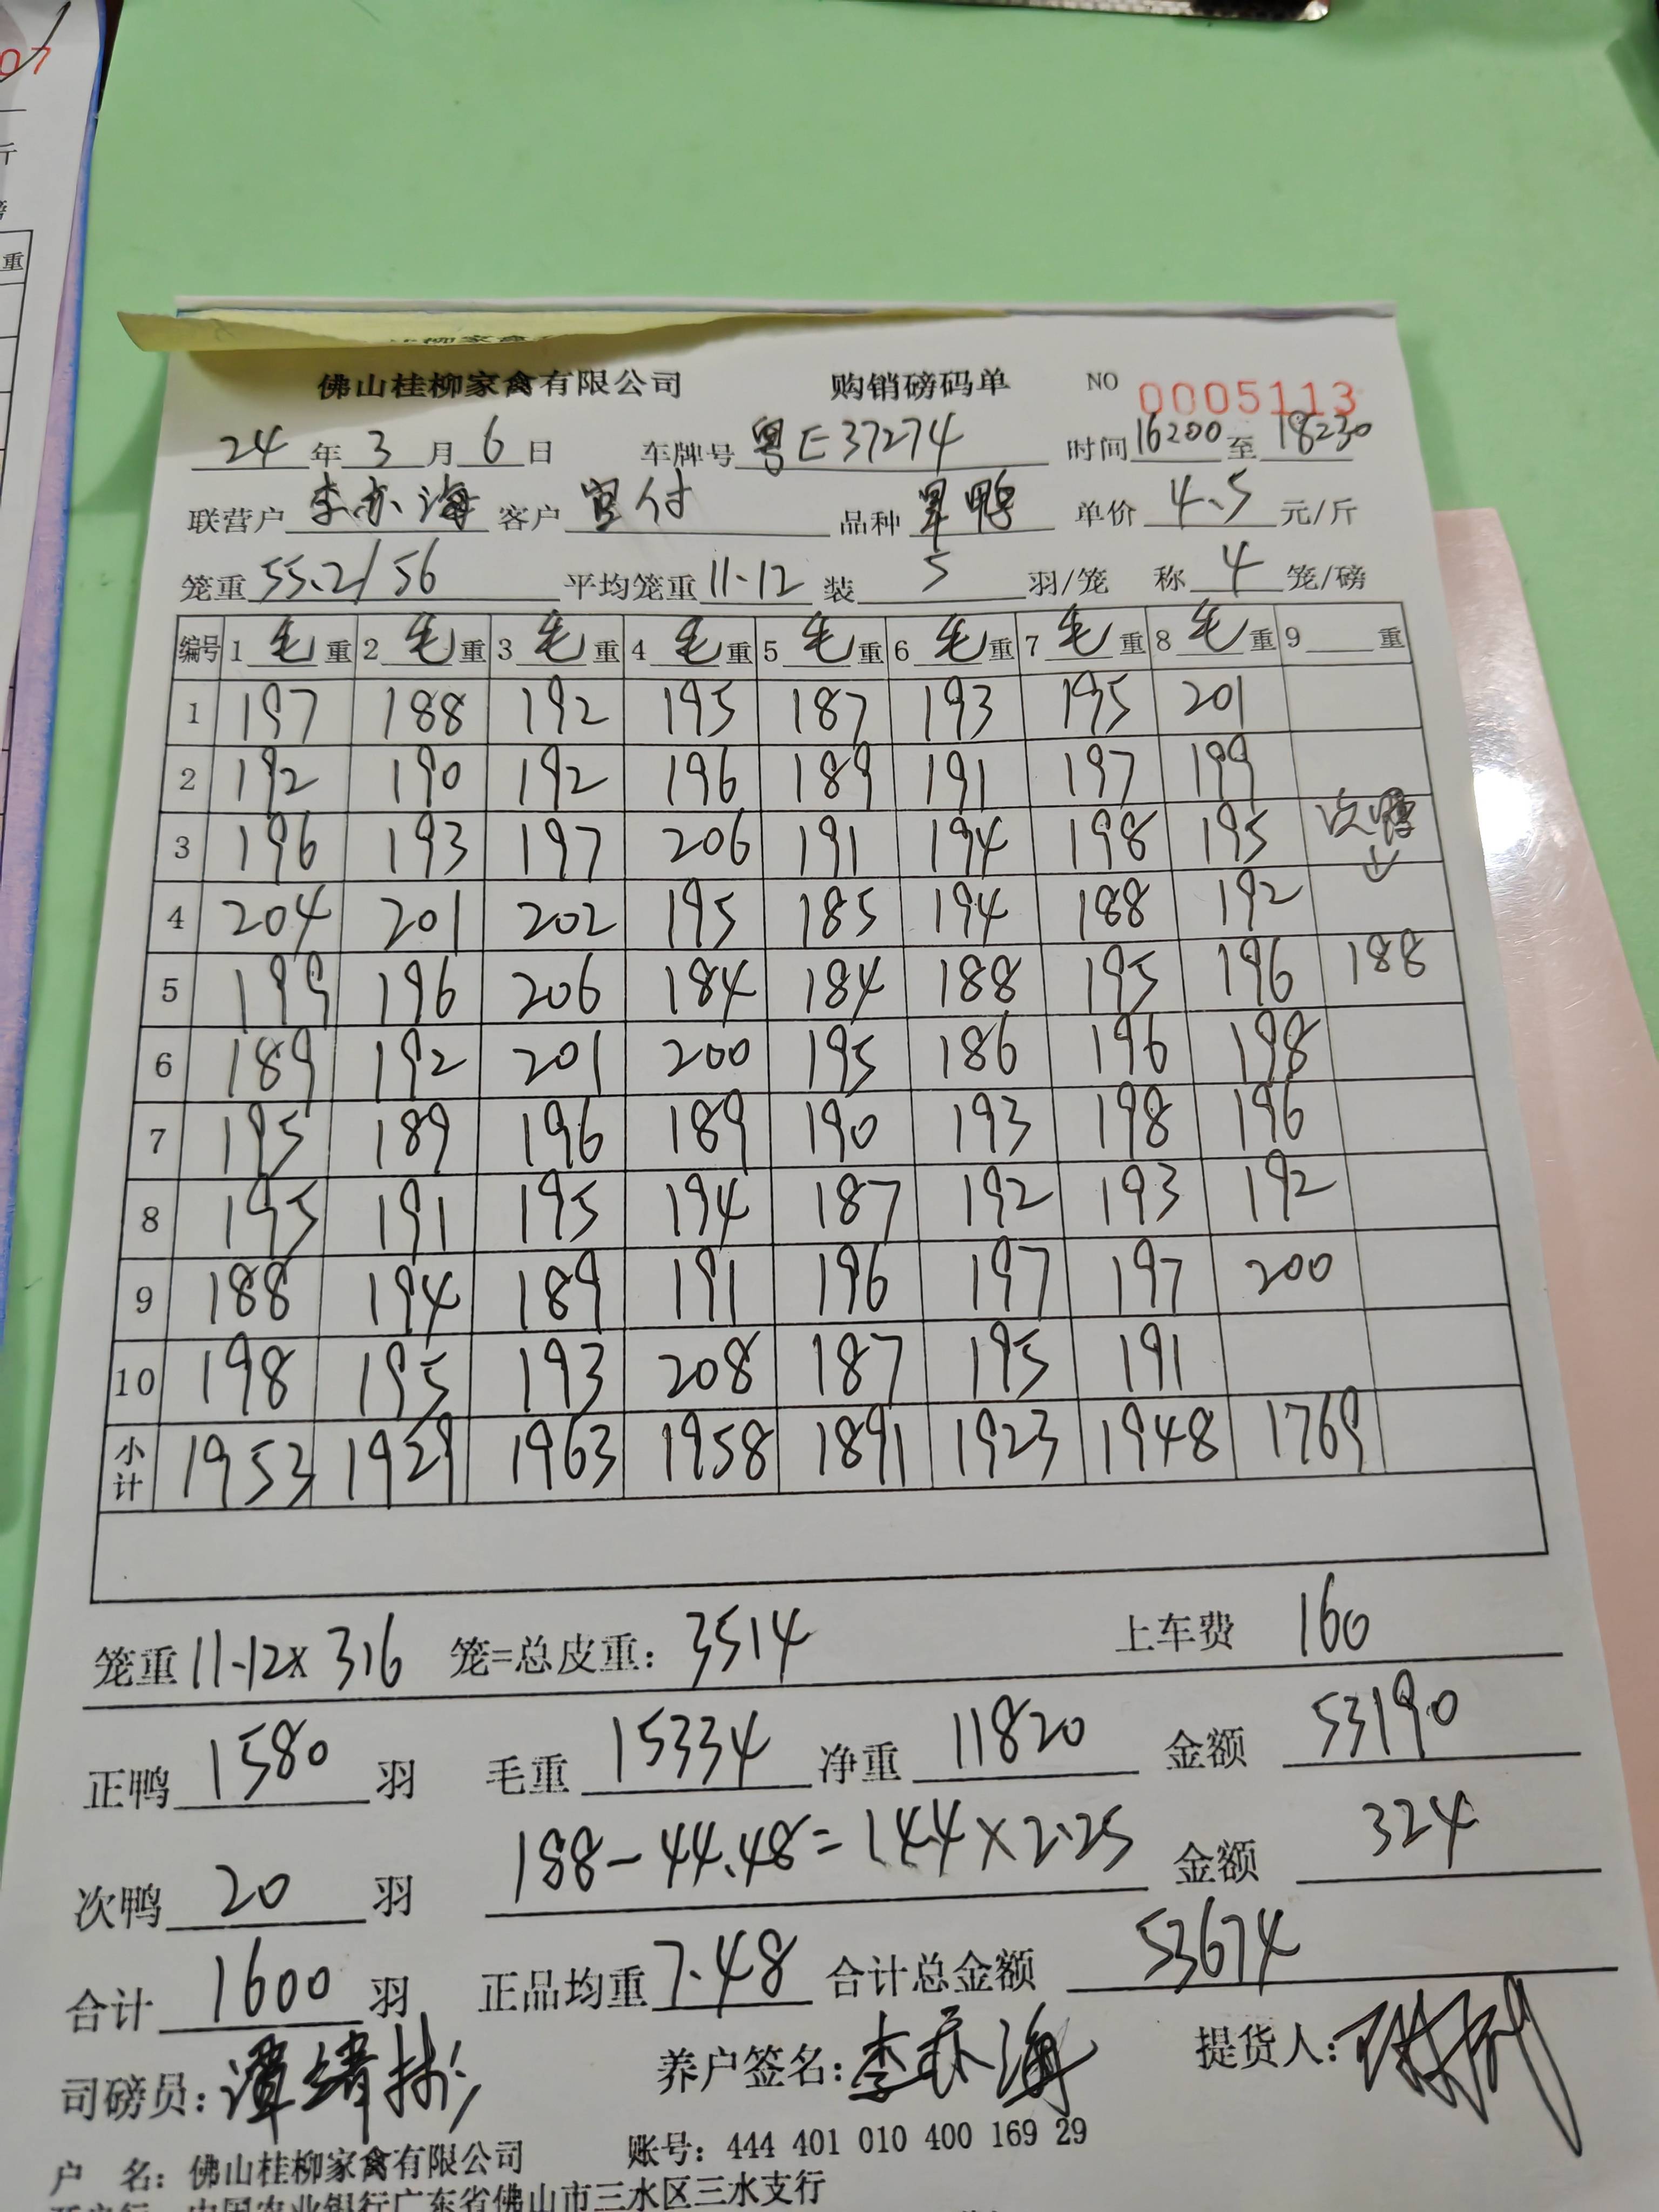 佛山桂柳家禽有限公司 购销磅码单 NO 0005113
24 年 3 月 6 日 车牌号 粤E37274 时间 16:00 至 18:30
联营户 李亦海 客户 客户 宝付 品种 单价 4.5 元/斤
笼重 55.2/56 平均笼重 11.12 装 5 羽/笼 称 4 笼/磅
编号 1 毛 重 2 毛 重 3 毛 重 4 毛 重 5 毛 重 6 毛 重 7 毛 重 8 毛 重 9 重
1 197 188 192 195 187 193 195 201
2 192 190 192 196 189 191 197 199
3 196 193 197 206 191 194 198 195 次鸭
4 204 201 202 195 185 194 188 192
5 199 196 206 184 184 188 195 196 188
6 189 192 201 200 195 186 196 198
7 195 189 196 189 190 193 198 196
8 195 191 195 194 187 192 193 192
9 188 194 189 191 196 197 197 200
10 198 195 193 208 187 195 191
小计 1953 1929 1963 1958 1891 1923 1948 1769
笼重 11.12× 316 笼=总皮重: 3514 上车费 160
正鸭 1580 羽 毛重 15334 净重 11820 金额 53190
次鸭 20 羽 188-44.48=144×2.25 金额 324
合计 1600 羽 正品均重 7.48 合计总金额 53674
司磅员: 养户签名: 李亦海 提货人:
户 名: 佛山桂柳家禽有限公司 账号: 444 401 010 400 169 29
中国农业银行广东省佛山市三水区三水支行